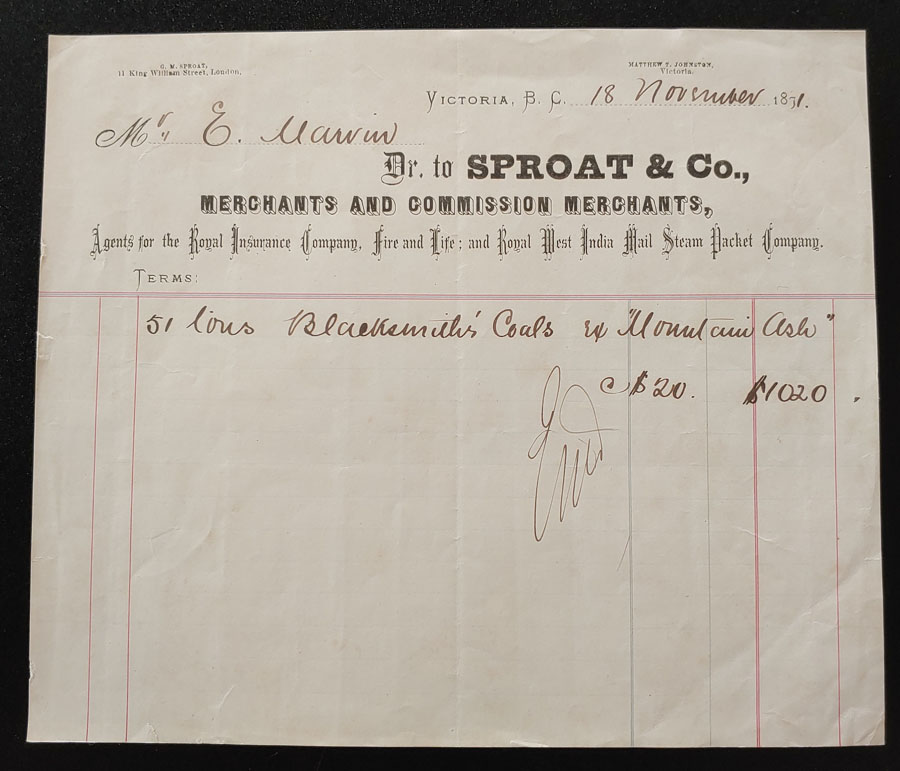 G. M. SPROAT,
11 King William Street, London,
MATTHEW T. JOHNSTON,
Victoria.
VICTORIA, B. C. 18 November 1871.
Mr. E. Marvin
Dr. to SPROAT & Co.,
MERCHANTS AND COMMISSION MERCHANTS,
Agents for the Royal Insurance Company, Fire and Life; and Royal West India Mail Steam Packet Company.
TERMS:
51 tons Blacksmith's Coals ex "Mountain Ash"
$20. $1020.